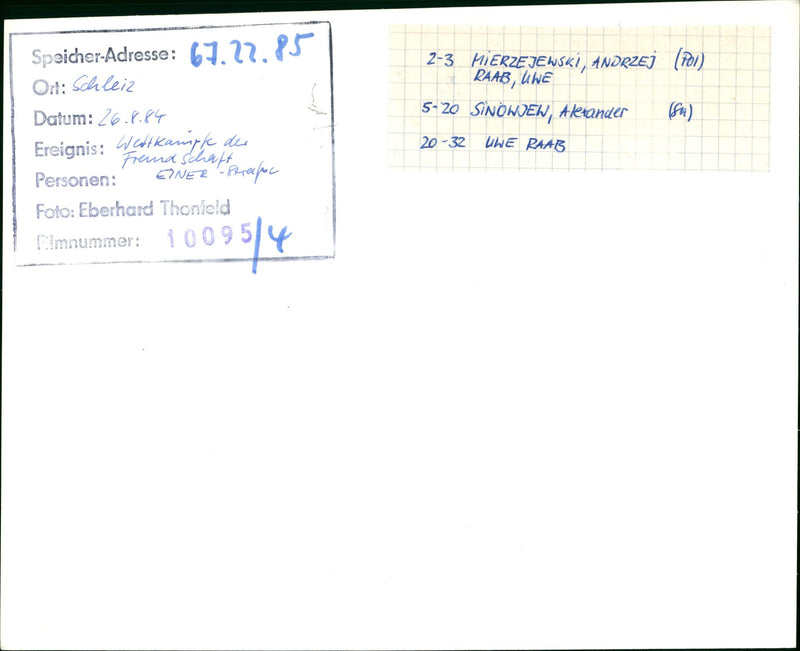 Speicher-Adresse: 67.22.85
Ort: Schleiz
Datum: 26.8.84
Ereignis: Wettkämpfe der
Freundschaft
Personen: EINER - Straße
Foto: Eberhard Thonfeld
Filmnummer: 10095/4
2-3 MIERZEJEWSKI, ANDRZEJ (Pol)
RAAB, UWE
5-20 SINOWJEW, Alexander (SU)
20-32 UWE RAAB